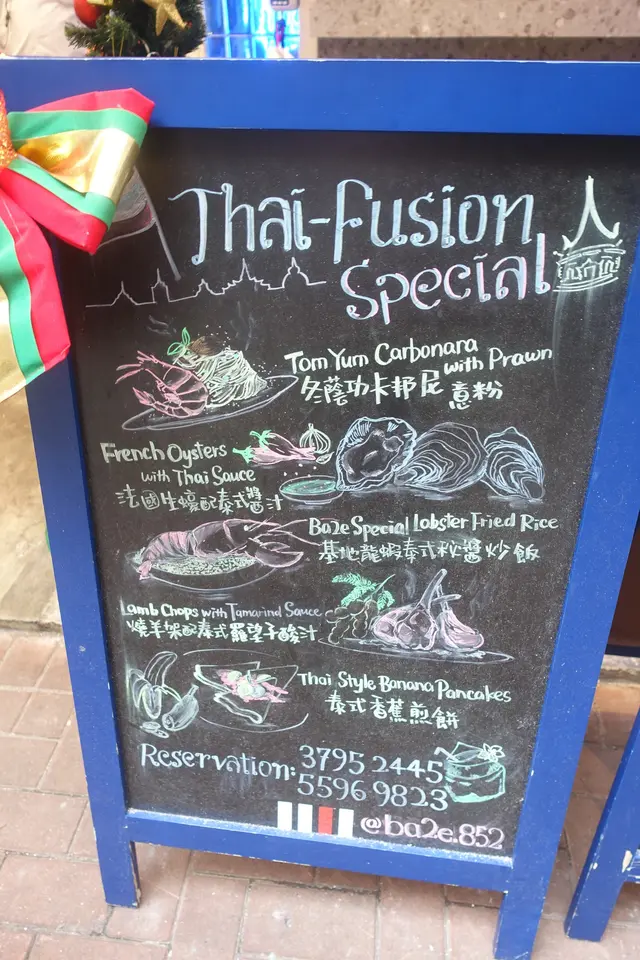 Thai-Fusion
Special
Tom Yum Carbonara
with Prawn
冬蔭功卡邦尼意粉
French Oysters
with Thai Sauce
法國生蠔配泰式醬汁
Ba2e Special Lobster Fried Rice
基地龍蝦泰式秘醬炒飯
Lamb Chops with Tamarind Sauce
燒羊架配泰式羅望子酸汁
Thai Style Banana Pancakes
泰式香蕉煎餅
Reservation: 3795 2445
5596 9823
@ba2e.852